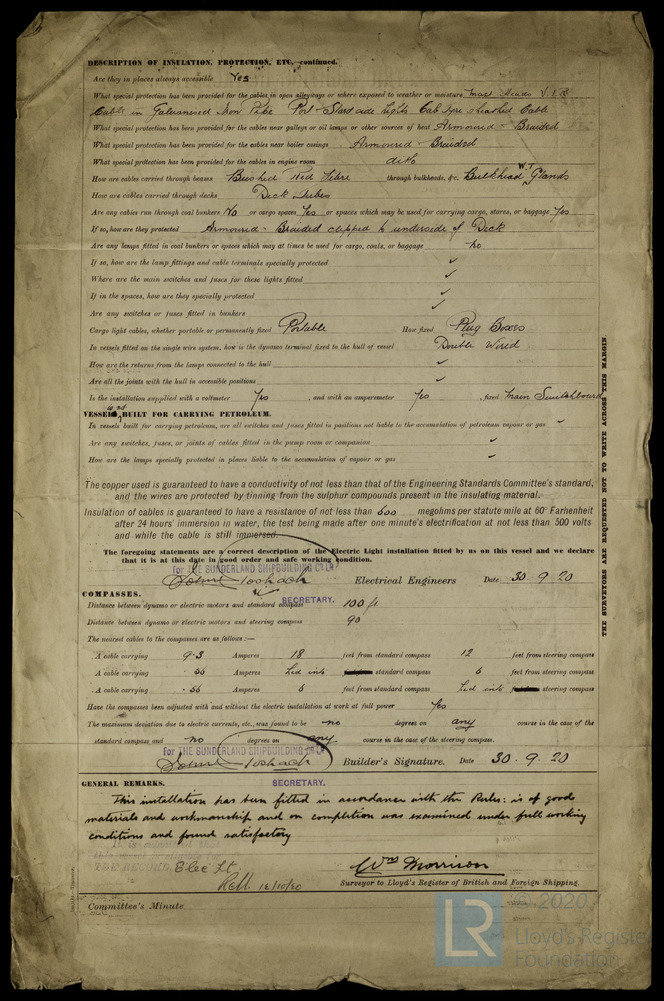 DESCRIPTION OF INSULATION, PROTECTION, ETC.—continued.
Are they in places always accessible Yes
What special protection has been provided for the cables in open alleyways or where exposed to weather or moisture Mast Heads V.I.R
Cable in Galvanised Iron Pipe Port & Starb side Lights Cab tyre sheathed Cable
What special protection has been provided for the cables near galleys or oil lamps or other sources of heat Armoured & Braided
What special protection has been provided for the cables near boiler casings Armoured & Braided
What special protection has been provided for the cables in engine room ditto
How are cables carried through beams Bushed Red Fibre through bulkheads, &c. Bulkhead W.T Glands
How are cables carried through decks Deck Tubes
Are any cables run through coal bunkers No or cargo spaces Yes or spaces which may be used for carrying cargo, stores, or baggage Yes
If so, how are they protected Armoured & Braided clipped to underside of Deck
Are any lamps fitted in coal bunkers or spaces which may at times be used for cargo, coals, or baggage no
If so, how are the lamp fittings and cable terminals specially protected ✓
Where are the main switches and fuses for these lights fitted ✓
If in the spaces, how are they specially protected ✓
Are any switches or fuses fitted in bunkers ✓
Cargo light cables, whether portable or permanently fixed Portable How fixed Plug Boxes
In vessels fitted on the single wire system, how is the dynamo terminal fixed to the hull of vessel Double Wired
How are the returns from the lamps connected to the hull ✓
Are all the joints with the hull in accessible positions ✓
Is the installation supplied with a voltmeter Yes , and with an amperemeter Yes , fixed Main Switchboard
VESSEL is not BUILT FOR CARRYING PETROLEUM.
In vessels built for carrying petroleum, are all switches and fuses fitted in positions not liable to the accumulation of petroleum vapour or gas ✓
Are any switches, fuses, or joints of cables fitted in the pump room or companion ✓
How are the lamps specially protected in places liable to the accumulation of vapour or gas ✓
The copper used is guaranteed to have a conductivity of not less than that of the Engineering Standards Committee's standard,
and the wires are protected by tinning from the sulphur compounds present in the insulating material.
Insulation of cables is guaranteed to have a resistance of not less than 600 megohms per statute mile at 60° Farhenheit
after 24 hours' immersion in water, the test being made after one minute's electrification at not less than 500 volts
and while the cable is still immersed.
The foregoing statements are a correct description of the Electric Light installation fitted by us on this vessel and we declare
that it is at this date in good order and safe working condition.
For THE SUNDERLAND SHIPBUILDING Co Ld
Electrical Engineers Date 30.9.20
SECRETARY.
COMPASSES.
Distance between dynamo or electric motors and standard compass 100 ft
Distance between dynamo or electric motors and steering compass 90
The nearest cables to the compasses are as follows:—
A cable carrying 9.3 Amperes 18 feet from standard compass 12 feet from steering compass
A cable carrying .56 Amperes Led into standard compass 6 feet from steering compass
A cable carrying .56 Amperes 6 feet from standard compass Led into steering compass
Have the compasses been adjusted with and without the electric installation at work at full power Yes
The maximum deviation due to electric currents, etc., was found to be no degrees on any course in the case of the
standard compass and no degrees on any course in the case of the steering compass.
For THE SUNDERLAND SHIPBUILDING Co Ld
Builder's Signature. Date 30.9.20
SECRETARY.
GENERAL REMARKS.
This installation has been fitted in accordance with the Rules: is of good
materials and workmanship and on completion was examined under full working
conditions and found satisfactory
THE RECORD. Elec Lt
Wm Morrison
Surveyor to Lloyd's Register of British and Foreign Shipping.
Committee's Minute
THE SURVEYORS ARE REQUESTED NOT TO WRITE ACROSS THIS MARGIN.
LR
© 2020
Lloyd's Register
Foundation